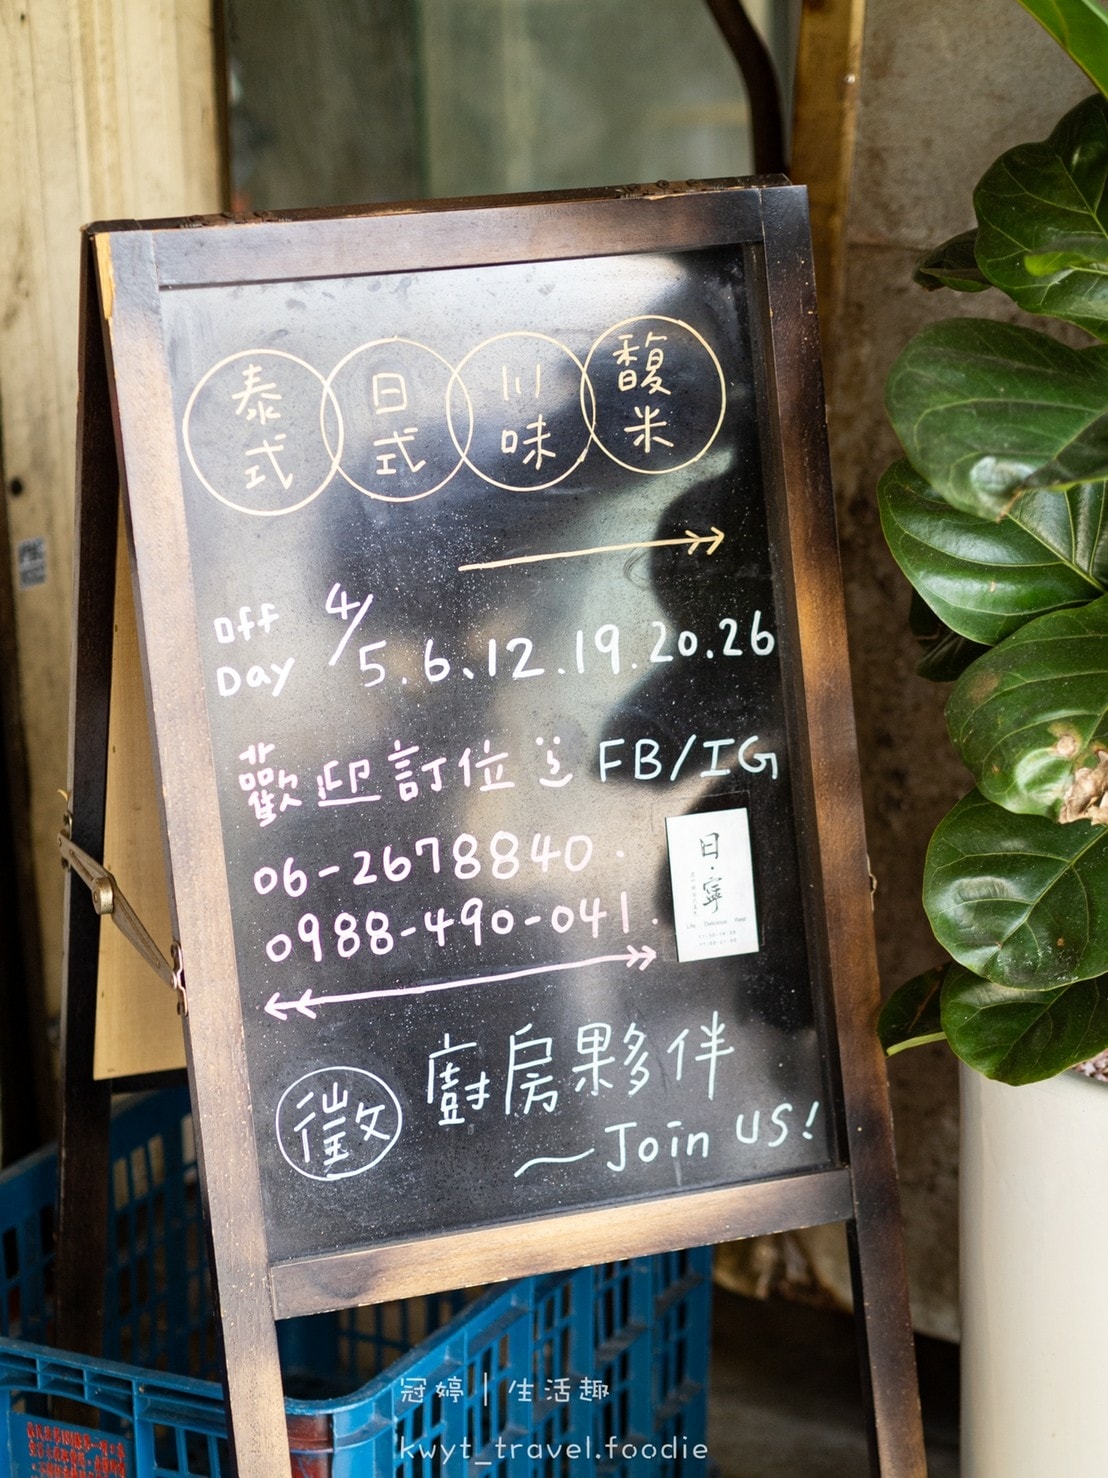 泰式 日式 川味 馥米
Off Day 4/5.6.12.19.20.26
歡迎訂位 FB/IG
06-2678840.
0988-490-041.
日·寧
Life Delicious Rest
徵 廚房夥伴
~Join us!
冠婷|生活趣
kwyt_travel.foodie